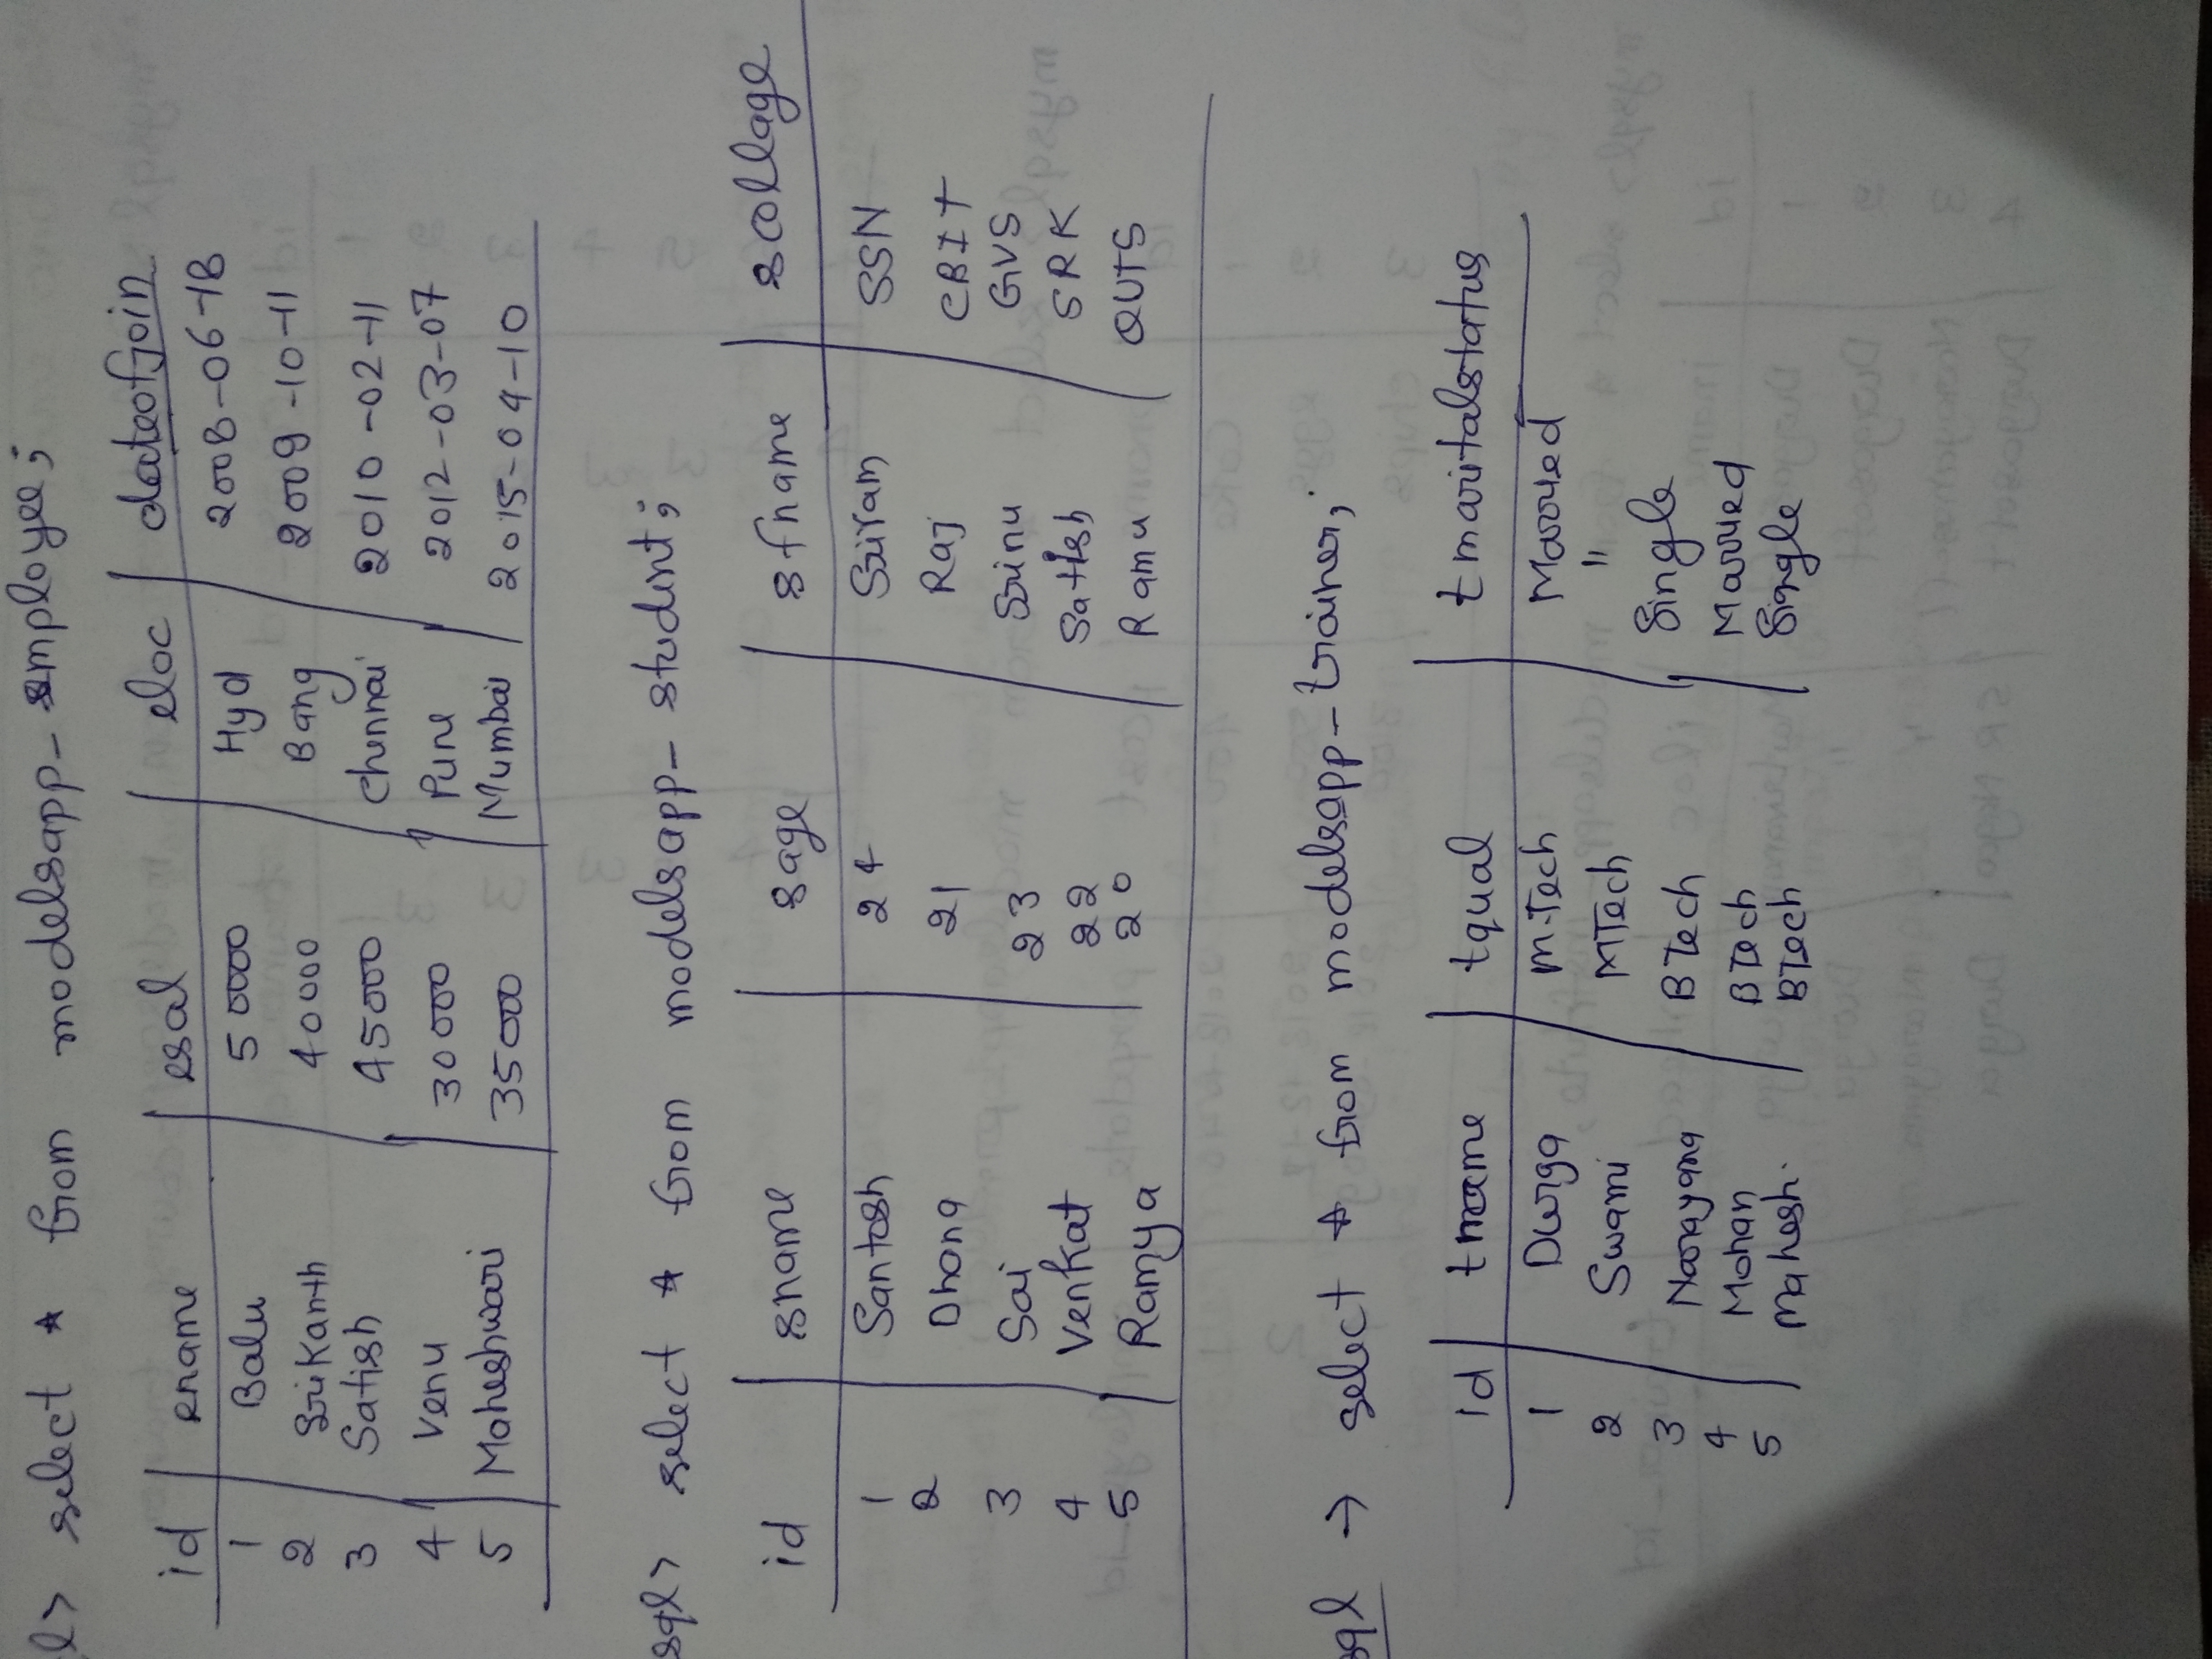 l> select * from modelsapp_employee;
id ename esal eloc dateofjoin
1 Balu 50000 Hyd 2008-06-18
2 Srikanth 40000 Bang 2009-10-11
3 Satish 45000 Chennai 2010-02-11
4 Venu 30000 Pune 2012-03-07
5 Maheshwari 35000 Mumbai 2015-04-10
sql> select * from modelsapp_student;
id sname sage sfname scollage
1 Santosh 24 Sriram SSN
2 Dhana 21 Raj CBIT
3 Sai 23 Srinu GVS
4 Venkat 22 Satish SRK
5 Ramya 20 Ramu QUTS
sql → select * from modelsapp_trainer;
id tname tqual tmaritalstatus
1 Durga M.Tech Married
2 Swami MTech "
3 Narayana BTech Single
4 Mohan BTech Married
5 Mahesh. BTech Single